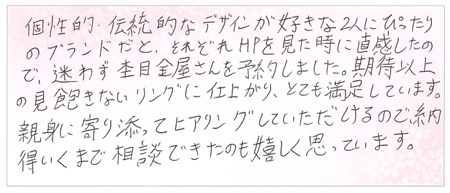 個性的・伝統的なデザインが好きな2人にぴったり
のブランドだと、それぞれHPを見た時に直感したの
で、迷わず杢目金屋さんを予約しました。期待以上
の見飽きないリングに仕上がり、とても満足しています。
親身に寄り添ってヒアリングしていただけるので、納
得いくまで相談できたのも嬉しく思っています。